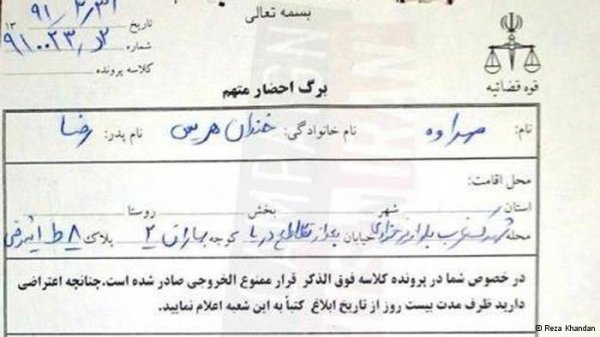 بسمه تعالی
تاریخ ۹۱/۳/۳۱ ۱۳
شماره ۹۱۰۰۲۳
کلاسه پرونده
قوه قضائیه
برگ احضار متهم
نام: مهراوه نام خانوادگی: خندان هریس نام پدر: رضا
محل اقامت:
استان شهر بخش روستا
محله شهرک غرب خیابان بعد از تقاطع دریا کوچه بهاران ۲ پلاک ۸ ط
در خصوص شما در پرونده کلاسه فوق الذکر قرار ممنوع الخروجی صادر شده است.چنانچه اعتراضی
دارید ظرف مدت بیست روز از تاریخ ابلاغ کتباً به این شعبه اعلام نمایید.
© Reza Khandan